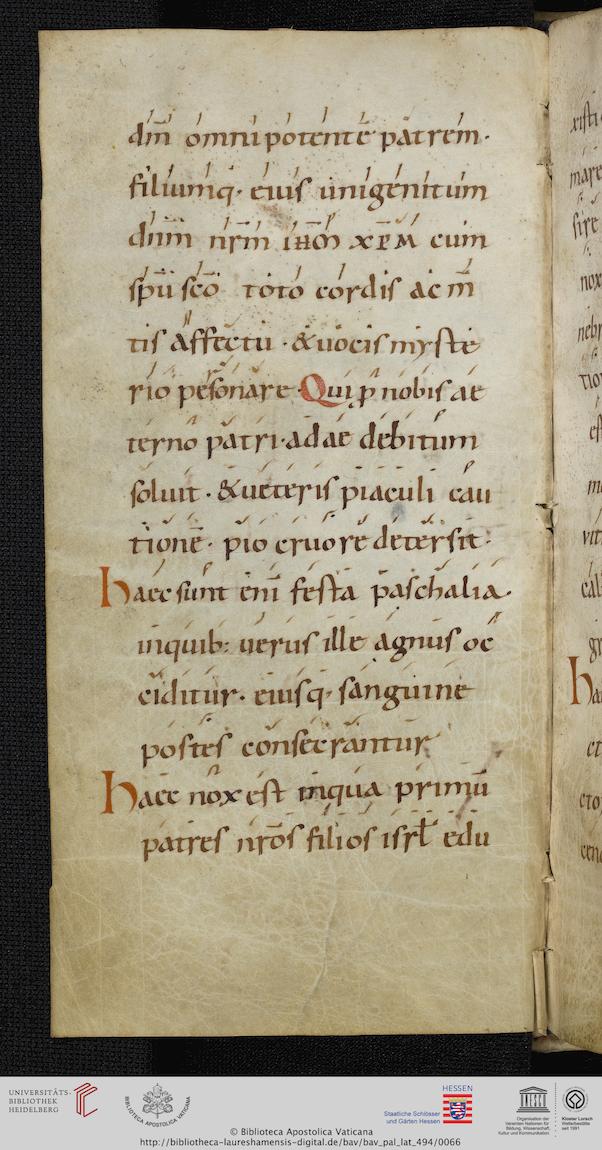 dm̄ omnipotentē patrem·
filiumq· eius unigenitum
dnm̄ nrm̄ ihm̄ xpm̄ cum
spū scō toto cordis ac m̄
tis affectu· &uocis myste
rio personare· Qui p nobis ae
terno patri· adae debitum
soluit· &ueteris piaculi cau
tionē· pio cruore detersit·
haec sunt eni festa paschalia·
inquib: uerus ille agnus oc
ciditur· eiusq· sanguine
postes consecrantur·
haec nox est inqua primū
patres nrōs filios isrl̄ edu
UNIVERSITÄTS-
BIBLIOTHEK
HEIDELBERG
BIBLIOTECA APOSTOLICA VATICANA
HESSEN
Staatliche Schlösser
und Gärten Hessen
Organisation der
Vereinten Nationen für
Bildung, Wissenschaft,
Kultur und Kommunikation
Kloster Lorsch
Welterbestätte
seit 1991
© Biblioteca Apostolica Vaticana
http://bibliotheca-laureshamensis-digital.de/bav/bav_pal_lat_494/0066